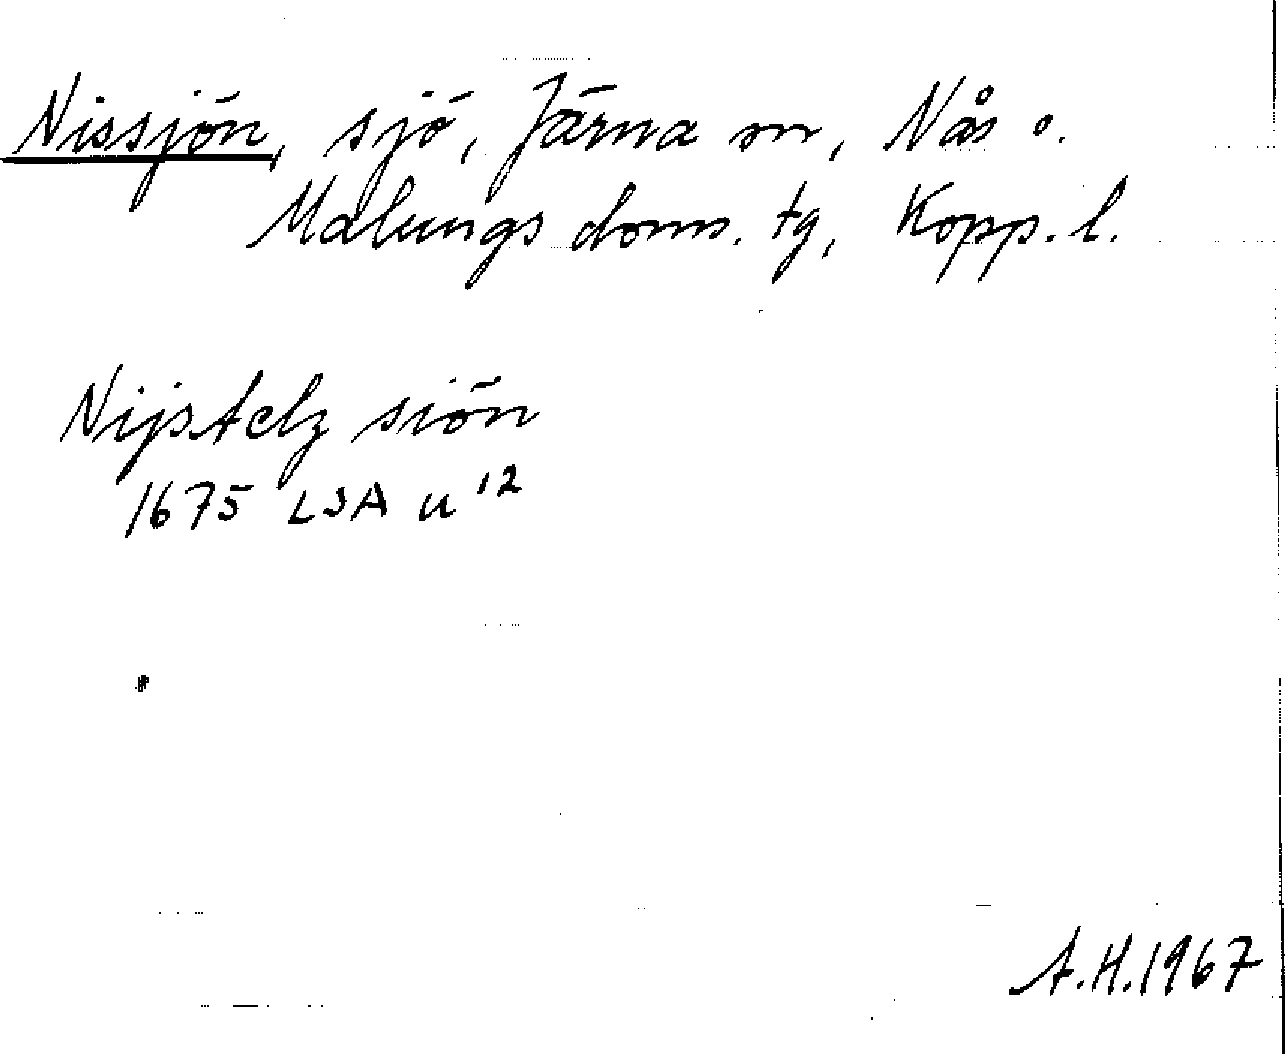 Nissjön, sjö, Järna sn, Nås o.
Malungs doms. tg, Kopp. l.
Nijstelz siön
1675 LSA u 12
A.H.1967